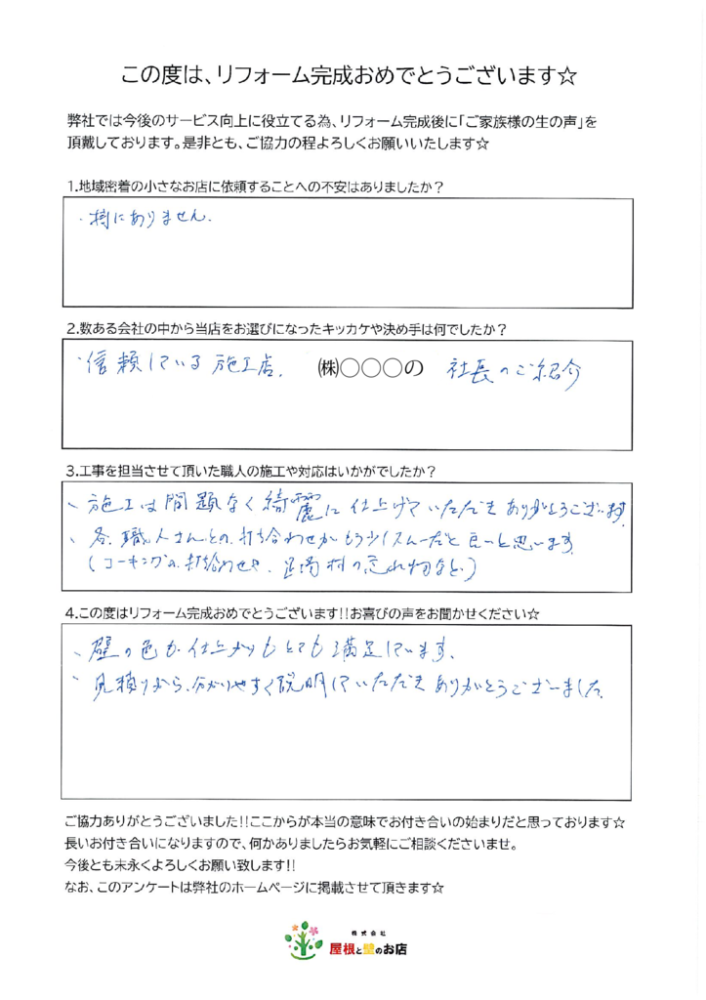 この度は、リフォーム完成おめでとうございます☆
弊社では今後のサービス向上に役立てる為、リフォーム完成後に「ご家族様の生の声」を
頂戴しております。是非とも、ご協力の程よろしくお願いいたします☆
1.地域密着の小さなお店に依頼することへの不安はありましたか？
・特にありません.
2.数ある会社の中から当店をお選びになったキッカケや決め手は何でしたか？
・信頼している施工店. ㈱〇〇〇の 社長のご紹介
3.工事を担当させて頂いた職人の施工や対応はいかがでしたか？
、施工は問題なく綺麗に仕上げていただきありがとうございます
、各、職人さんとの、打ち合わせがもう少しスムーだと良いと思います
(コーキングの、打ち合わせや、足場材の忘れ物など)
4.この度はリフォーム完成おめでとうございます!!お喜びの声をお聞かせください☆
、壁の色も仕上がりもとても満足しています.
、見積りから、分かりやすく説明していただきありがとうございました
ご協力ありがとうございました!!ここからが本当の意味でお付き合いの始まりだと思っております☆
長いお付き合いになりますので、何かありましたらお気軽にご相談くださいませ。
今後とも末永くよろしくお願い致します!!
なお、このアンケートは弊社のホームページに掲載させて頂きます☆
株式会社
屋根と壁のお店